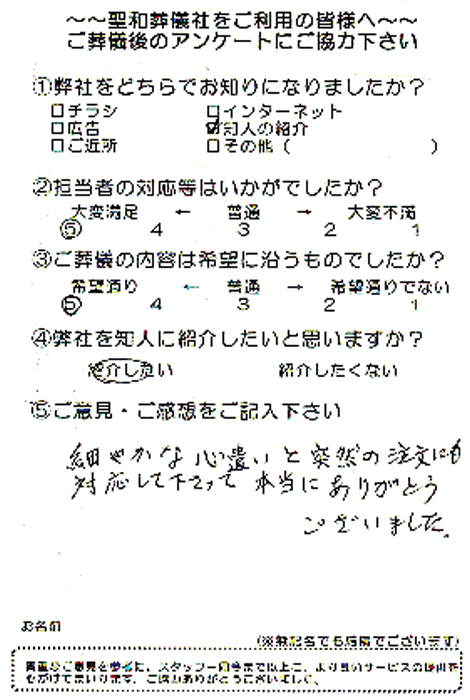 ～～聖和葬儀社をご利用の皆様へ～～
ご葬儀後のアンケートにご協力下さい
①弊社をどちらでお知りになりましたか？
□チラシ □インターネット
□広告 ☑知人の紹介
□ご近所 □その他（ ）
②担当者の対応等はいかがでしたか？
大変満足 ← 普通 → 大変不満
⑤ 4 3 2 1
③ご葬儀の内容は希望に沿うものでしたか？
希望通り ← 普通 → 希望通りでない
⑤ 4 3 2 1
④弊社を知人に紹介したいと思いますか？
紹介したい 紹介したくない
⑤ご意見・ご感想をご記入下さい
細やかな心遣いと突然の注文にも
対応して下さって 本当にありがとう
ございました。
お名前
（※無記名でも結構でございます）
貴重なご意見を参考に、スタッフ一同今まで以上に、より良いサービスの提供を
心がけてまいります。ご協力ありがとうございました。